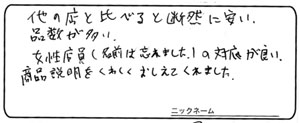 他の店と比べると断然に安い.
品数が多い.
女性店員(名前は忘れました)の対応が良い.
商品説明をくわしくおしえてくれました.
ニックネーム